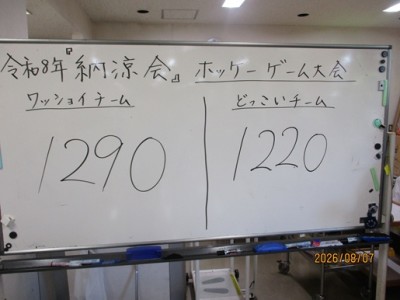 令和8年『納涼会』 ホッケーゲーム大会
ワッショイチーム
どっこいチーム
1290
1220
2026/08/07